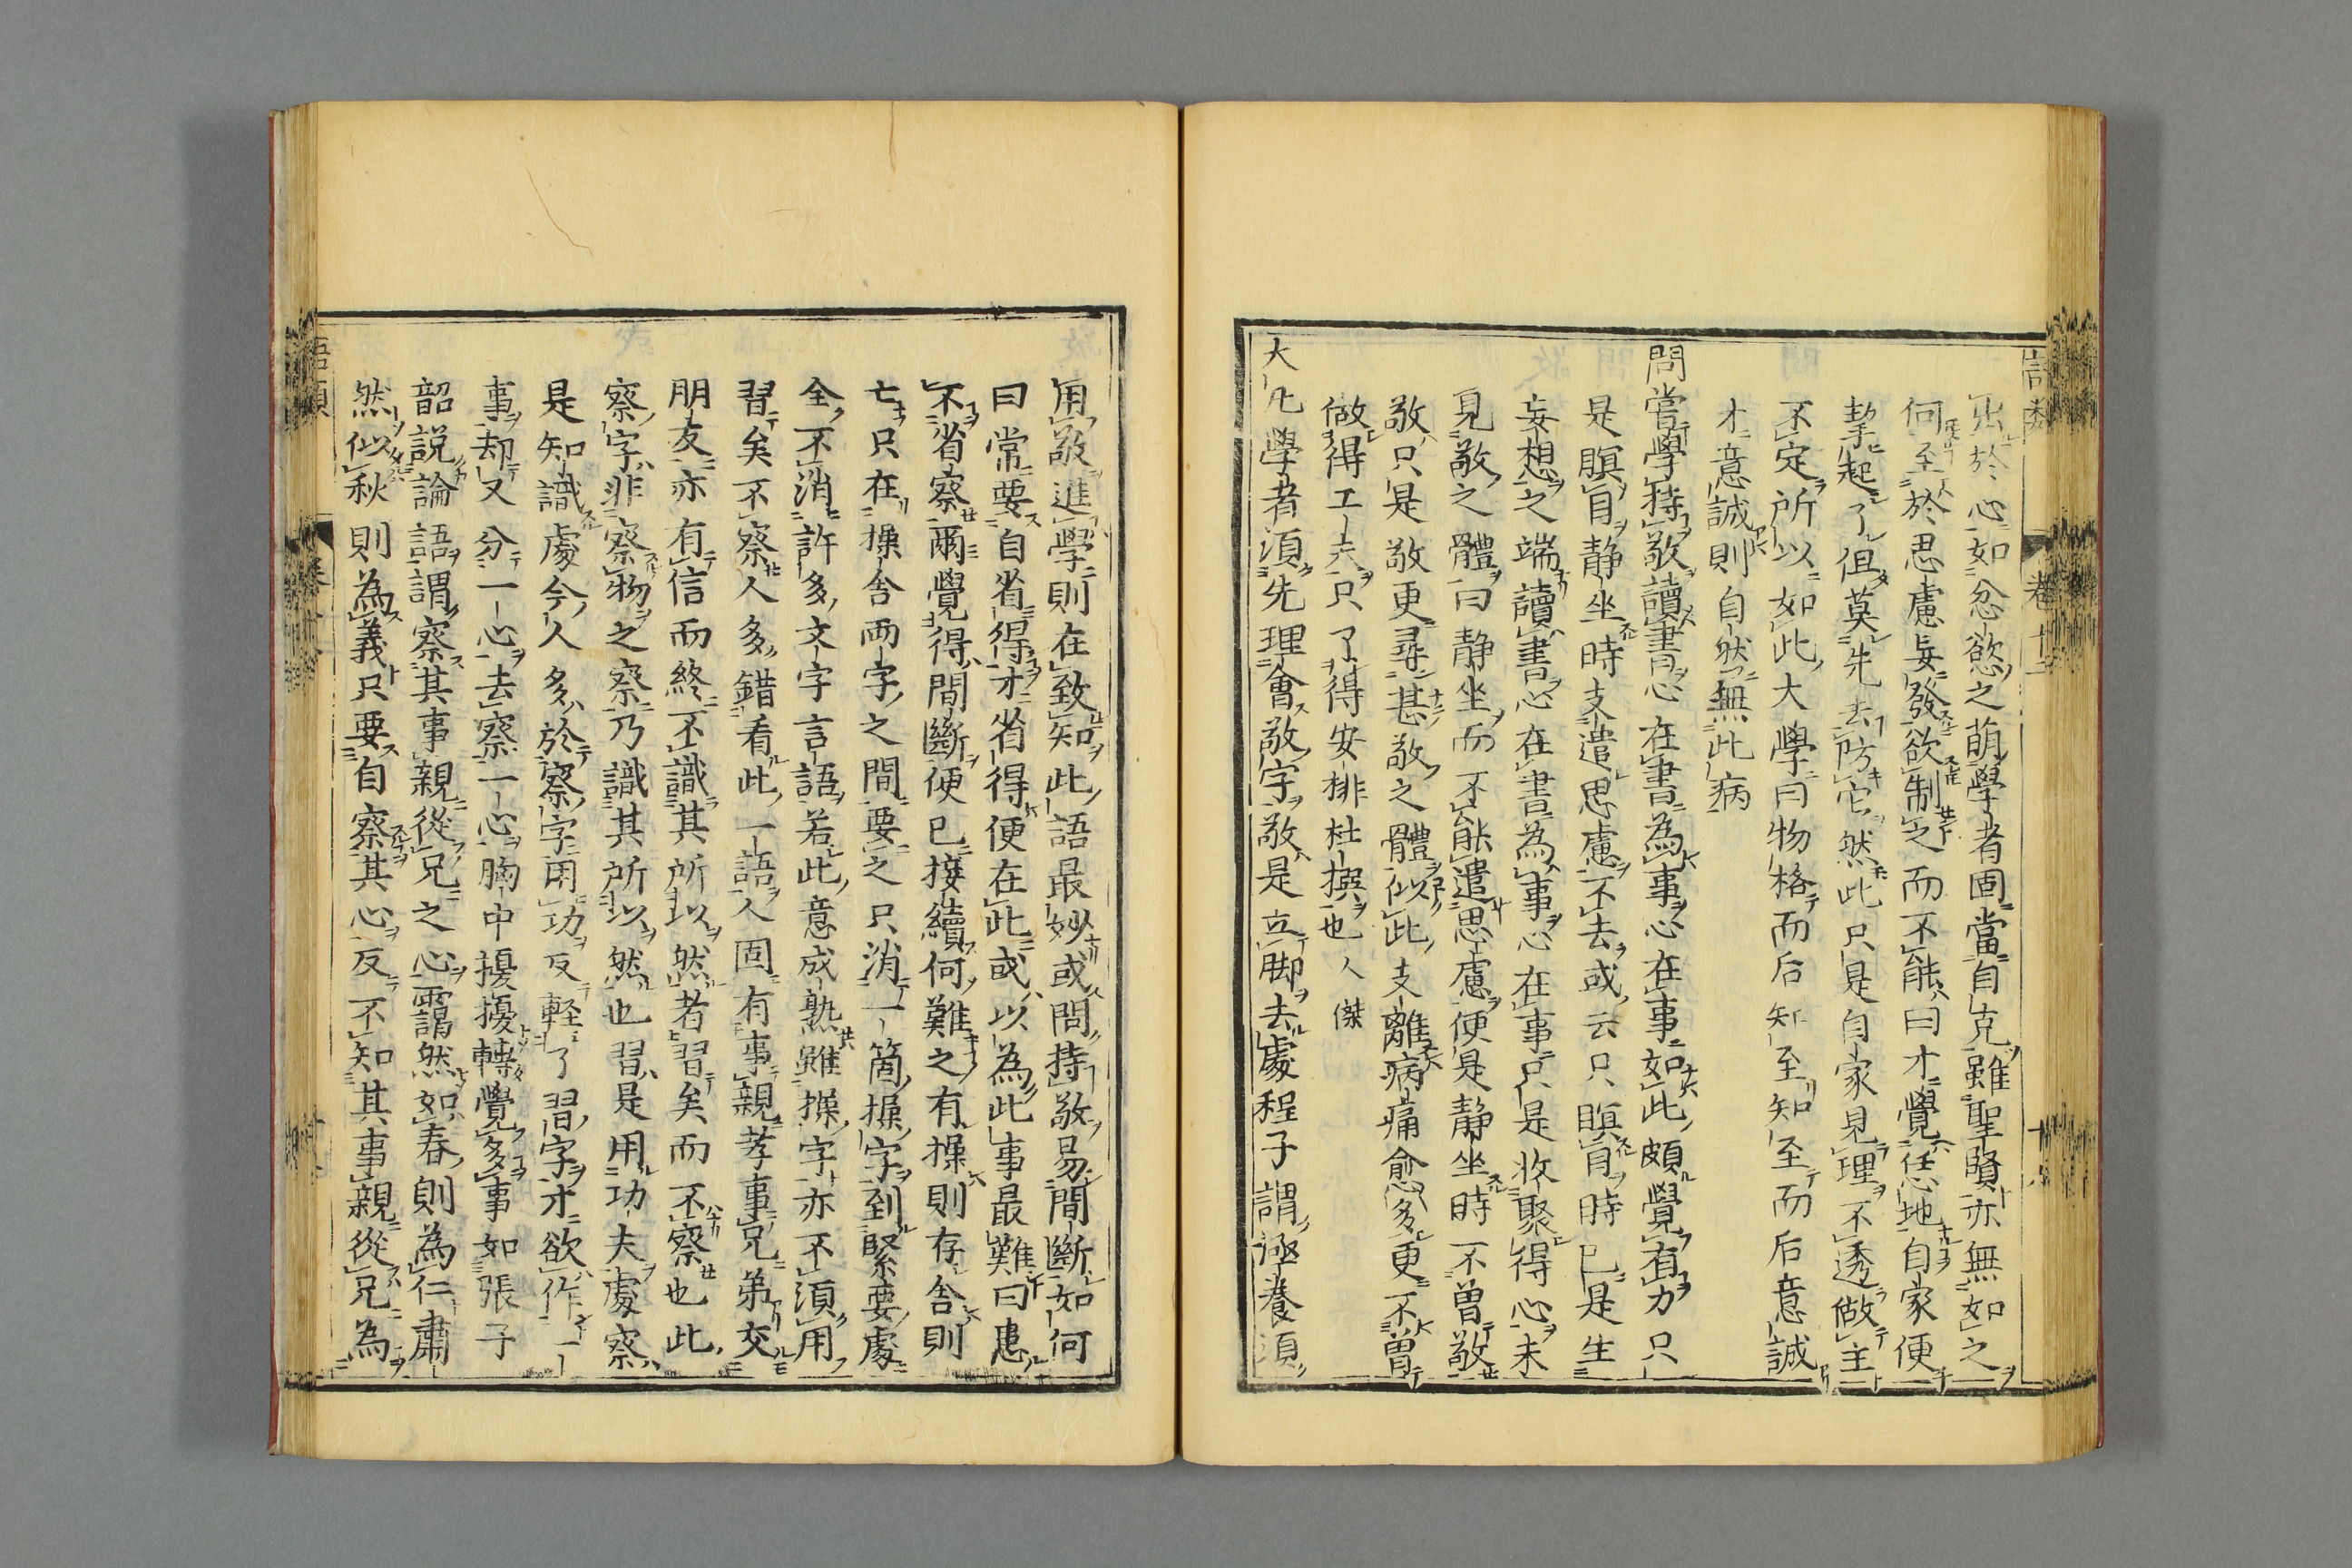 出於心如忿慾之萌學者固當自克雖聖賢亦無如之
何至於思慮妄發欲制之而不能曰才覺恁地自家便
挈起了但莫先去防它然此只是自家見理不透做主
不定所以如此大學曰物格而后知至知至而后意誠
才意誠則自然無此病
問嘗學持敬讀書心在書為事心在事如此頗覺有力只
是瞑目静坐時支遣思慮不去或云只瞑目時已是生
妄想之端讀書心在書為事心在事只是收聚得心未
見敬之體曰静坐而不能遣思慮便是静坐時不曽敬
敬只是敬更尋甚敬之體似此支離病痛愈多更不曽
做得工夫只了得安排杜撰也人傑
大凡學者須先理會敬字敬是立脚去處程子謂涵養須
用敬進學則在致知此語最妙或問持敬易間斷如何
曰常要自省得才省得便在此或以為此事最難曰患
不省察爾覺得間斷便已接續何難之有操則存舎則
亡只在操舎兩字之間要之只消一箇操字到緊要處
全不消許多文字言語若此意成熟雖操字亦不須用
習矣不察人多錯看此一語人固有事親孝事兄弟交
朋友亦有信而終不識其所以然者習矣而不察也此
察字非察物之察乃識其所以然也習是用功夫處察
是知識處今人多於察字用功反軽了習字才欲作一
事却又分一心去察一心胸中擾擾轉覺多事如張子
韶説論語謂察其事親從兄之心靄然如春則為仁肅
然似秋則為義只要自察其心反不知其事親從兄為
語類
卷十二